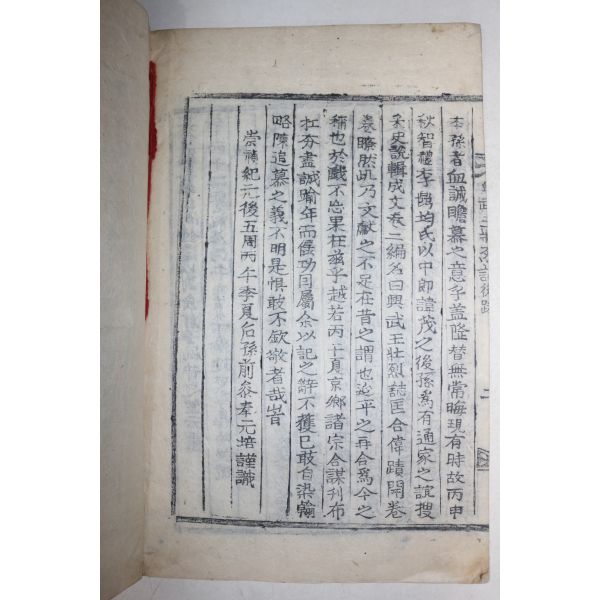 本孫者血誠瞻慕之意乎盖隆替無常晦現有時故丙申
秋智禮李 均氏以中郎諱茂之後孫爲有通家之誼搜
采史說輯成文卷二編名曰興武王壯烈誌匡合偉蹟開卷
卷瞭然此乃文獻之不足在昔之謂也延平之再合爲今之
稱也於戱不忘果在玆乎越若丙午夏京鄕諸宗合謀刋布
在夯盡誠踰年而僝功因屬余以記之辭不獲已敢自染翰
略陳追慕之義不明是懼敢不欽敬者哉旹
崇禎紀元後五周丙午季夏后孫前參奉元培謹識